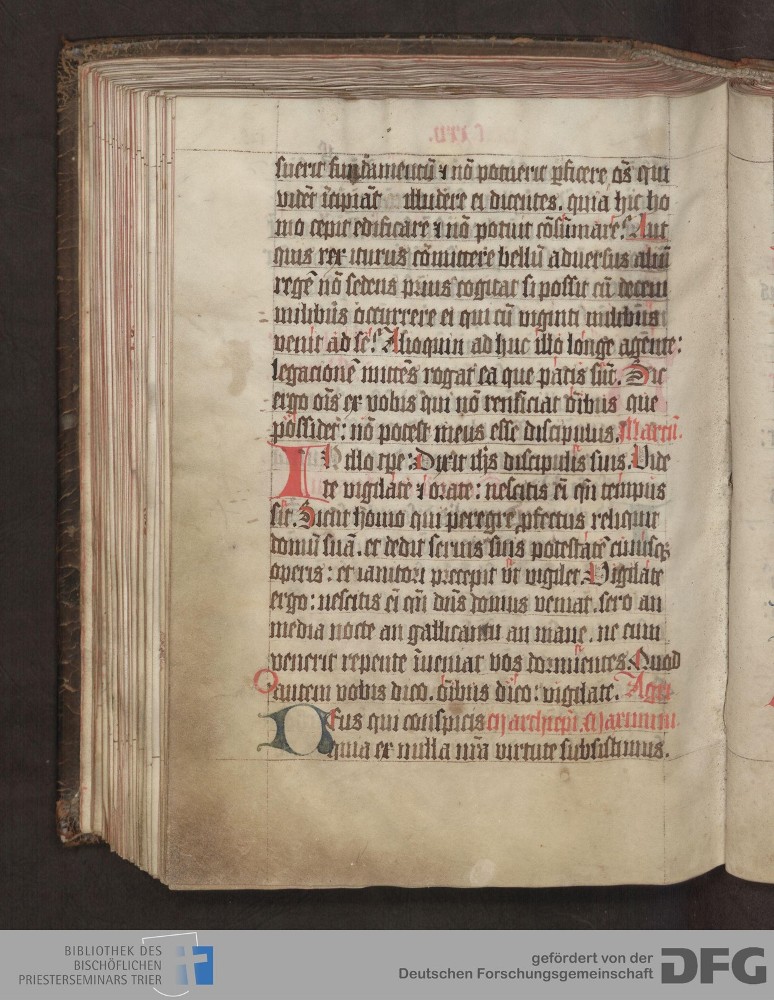 fuerit fundamentū ⁊ nō potuerit ꝑficere oēs qui
vidēt īcipiāt illudere ei dicentes. quia hic ho
mo cepit edificare ⁊ nō potuit cōsūmare? Aut
quis rex iturus cōmittere bellū adversus aliū
regē nō sedens prius cogitat si possit cū decem
milibus occurrere ei qui cū viginti milibus
venit ad se? Alioquin ad huc illo longe agente:
legacionē mittēs rogat ea que pacis sūt. Sic
ergo oīs ex vobis qui nō renūciat oībus que
possidet: nō potest meus esse discipulus. Marcū.
IN illo tpe: Dixit ihs discipulis suis. Vide
te vigilate ⁊ orate: nescitis eī qn̄ tempus
sit. Sicut homo qui peregre ꝓfectus reliquit
domū suā. et dedit servis suis potestatē cuiusqꝫ
operis: et ianitori precepit ut vigilet. Vigilate
ergo: nescitis eī qn̄ dn̄s domus veniat. sero an
media nocte an gallicantu an mane. ne cum
venerit repente īveniat vos dormientes. Quod
autem vobis dico. oībus dico: vigilate.
Deus qui conspicis
quia ex nulla nr̄a virtute subsistimus.
C IIII
BIBLIOTHEK DES
BISCHÖFLICHEN
PRIESTERSEMINARS TRIER
gefördert von der
Deutschen Forschungsgemeinschaft
DFG